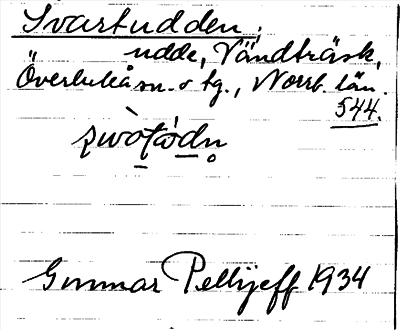 Svartudden,
udde, Vändträsk,
Överluleå sn. o tg., Norrb. län.
544.
Gunnar Pellijeff 1934